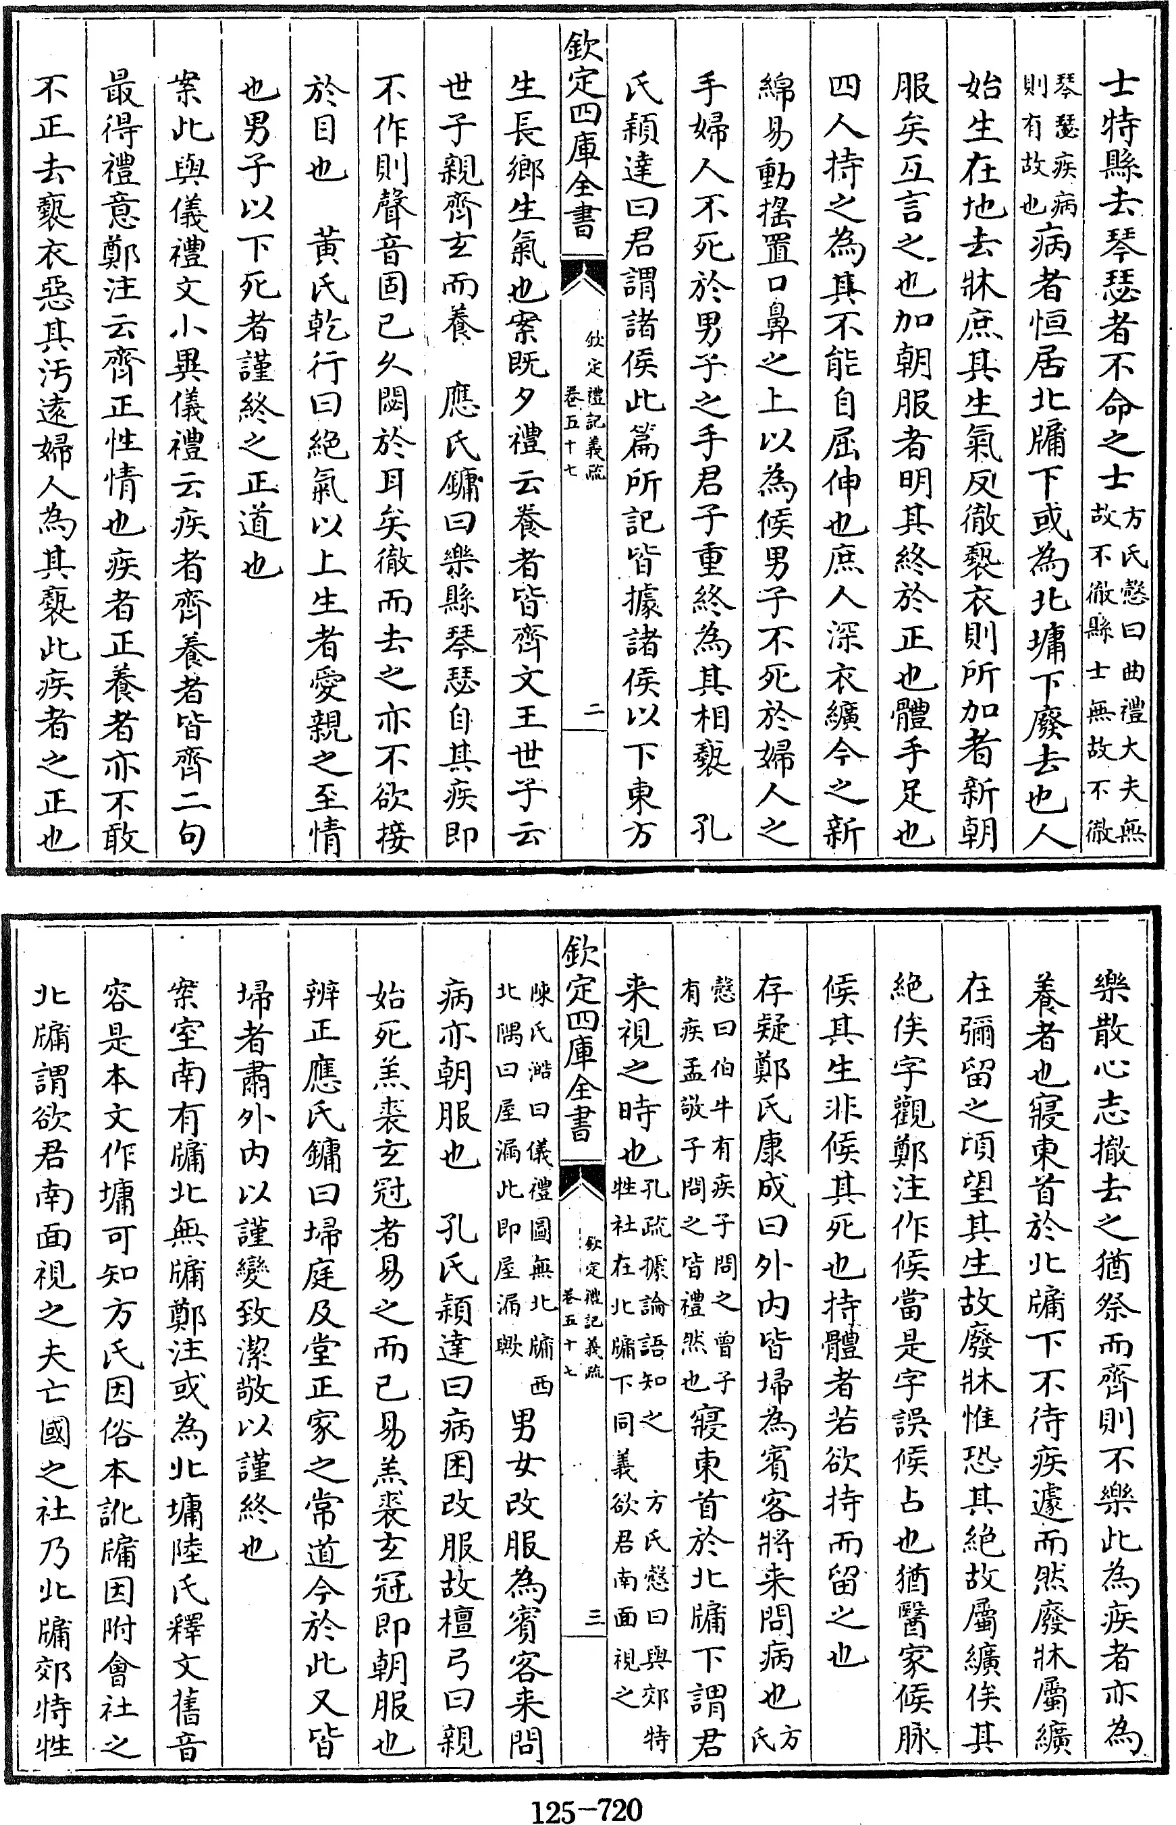 士特縣去琴瑟者不命之士方氏慤曰曲禮大夫無故不徹縣士無故不徹
琴瑟疾病則有故也病者恒居北牖下或為北墉下廢去也人
始生在地去牀庶其生氣反徹褻衣則所加者新朝
服矣互言之也加朝服者明其終於正也體手足也
四人持之為其不能自屈伸也庶人深衣纊今之新
綿易動揺置口鼻之上以為候男子不死於婦人之
手婦人不死於男子之手君子重終為其相褻　孔
氏穎達曰君謂諸侯此篇所記皆據諸侯以下東方
欽定四庫全書　欽定禮記義疏　卷五十七　二
生長鄉生氣也案既夕禮云養者皆齊文王世子云
世子親齊玄而養　應氏鏞曰樂縣琴瑟自其疾即
不作則聲音固已久閟於耳矣徹而去之亦不欲接
於目也　黄氏乾行曰絶氣以上生者愛親之至情
也男子以下死者謹終之正道也
案此與儀禮文小異儀禮云疾者齊養者皆齊二句
最得禮意鄭注云齊正性情也疾者正養者亦不敢
不正去褻衣惡其汚遠婦人為其褻此疾者之正也
樂散心志撤去之猶祭而齊則不樂此為疾者亦為
養者也寢東首於北牖下不待疾遽而然廢牀屬纊
在彌留之頃望其生故廢牀惟恐其絶故屬纊俟其
絶俟字觀鄭注作候當是字誤候占也猶醫家候脉
候其生非候其死也持體者若欲持而留之也
存疑鄭氏康成曰外内皆埽為賓客將来問病也方氏
慤曰伯牛有疾子問之曾子有疾孟敬子問之皆禮然也寢東首於北牖下謂君
来視之時也孔疏據論語知之　方氏慤曰與郊特牲社在北牖下同義欲君南面視之
欽定四庫全書　欽定禮記義疏　卷五十七　三
陳氏澔曰儀禮圖無北牖西北隅曰屋漏此即屋漏歟男女改服為賓客来問
病亦朝服也　孔氏穎達曰病困改服故檀弓曰親
始死羔裘玄冠者易之而已易羔裘玄冠即朝服也
辨正應氏鏞曰埽庭及堂正家之常道今於此又皆
埽者肅外内以謹變致潔敬以謹終也
案室南有牖北無牖鄭注或為北墉陸氏釋文舊音
容是本文作墉可知方氏因俗本訛牖因附會社之
北牖謂欲君南面視之夫亡國之社乃北牖郊特牲
125-720